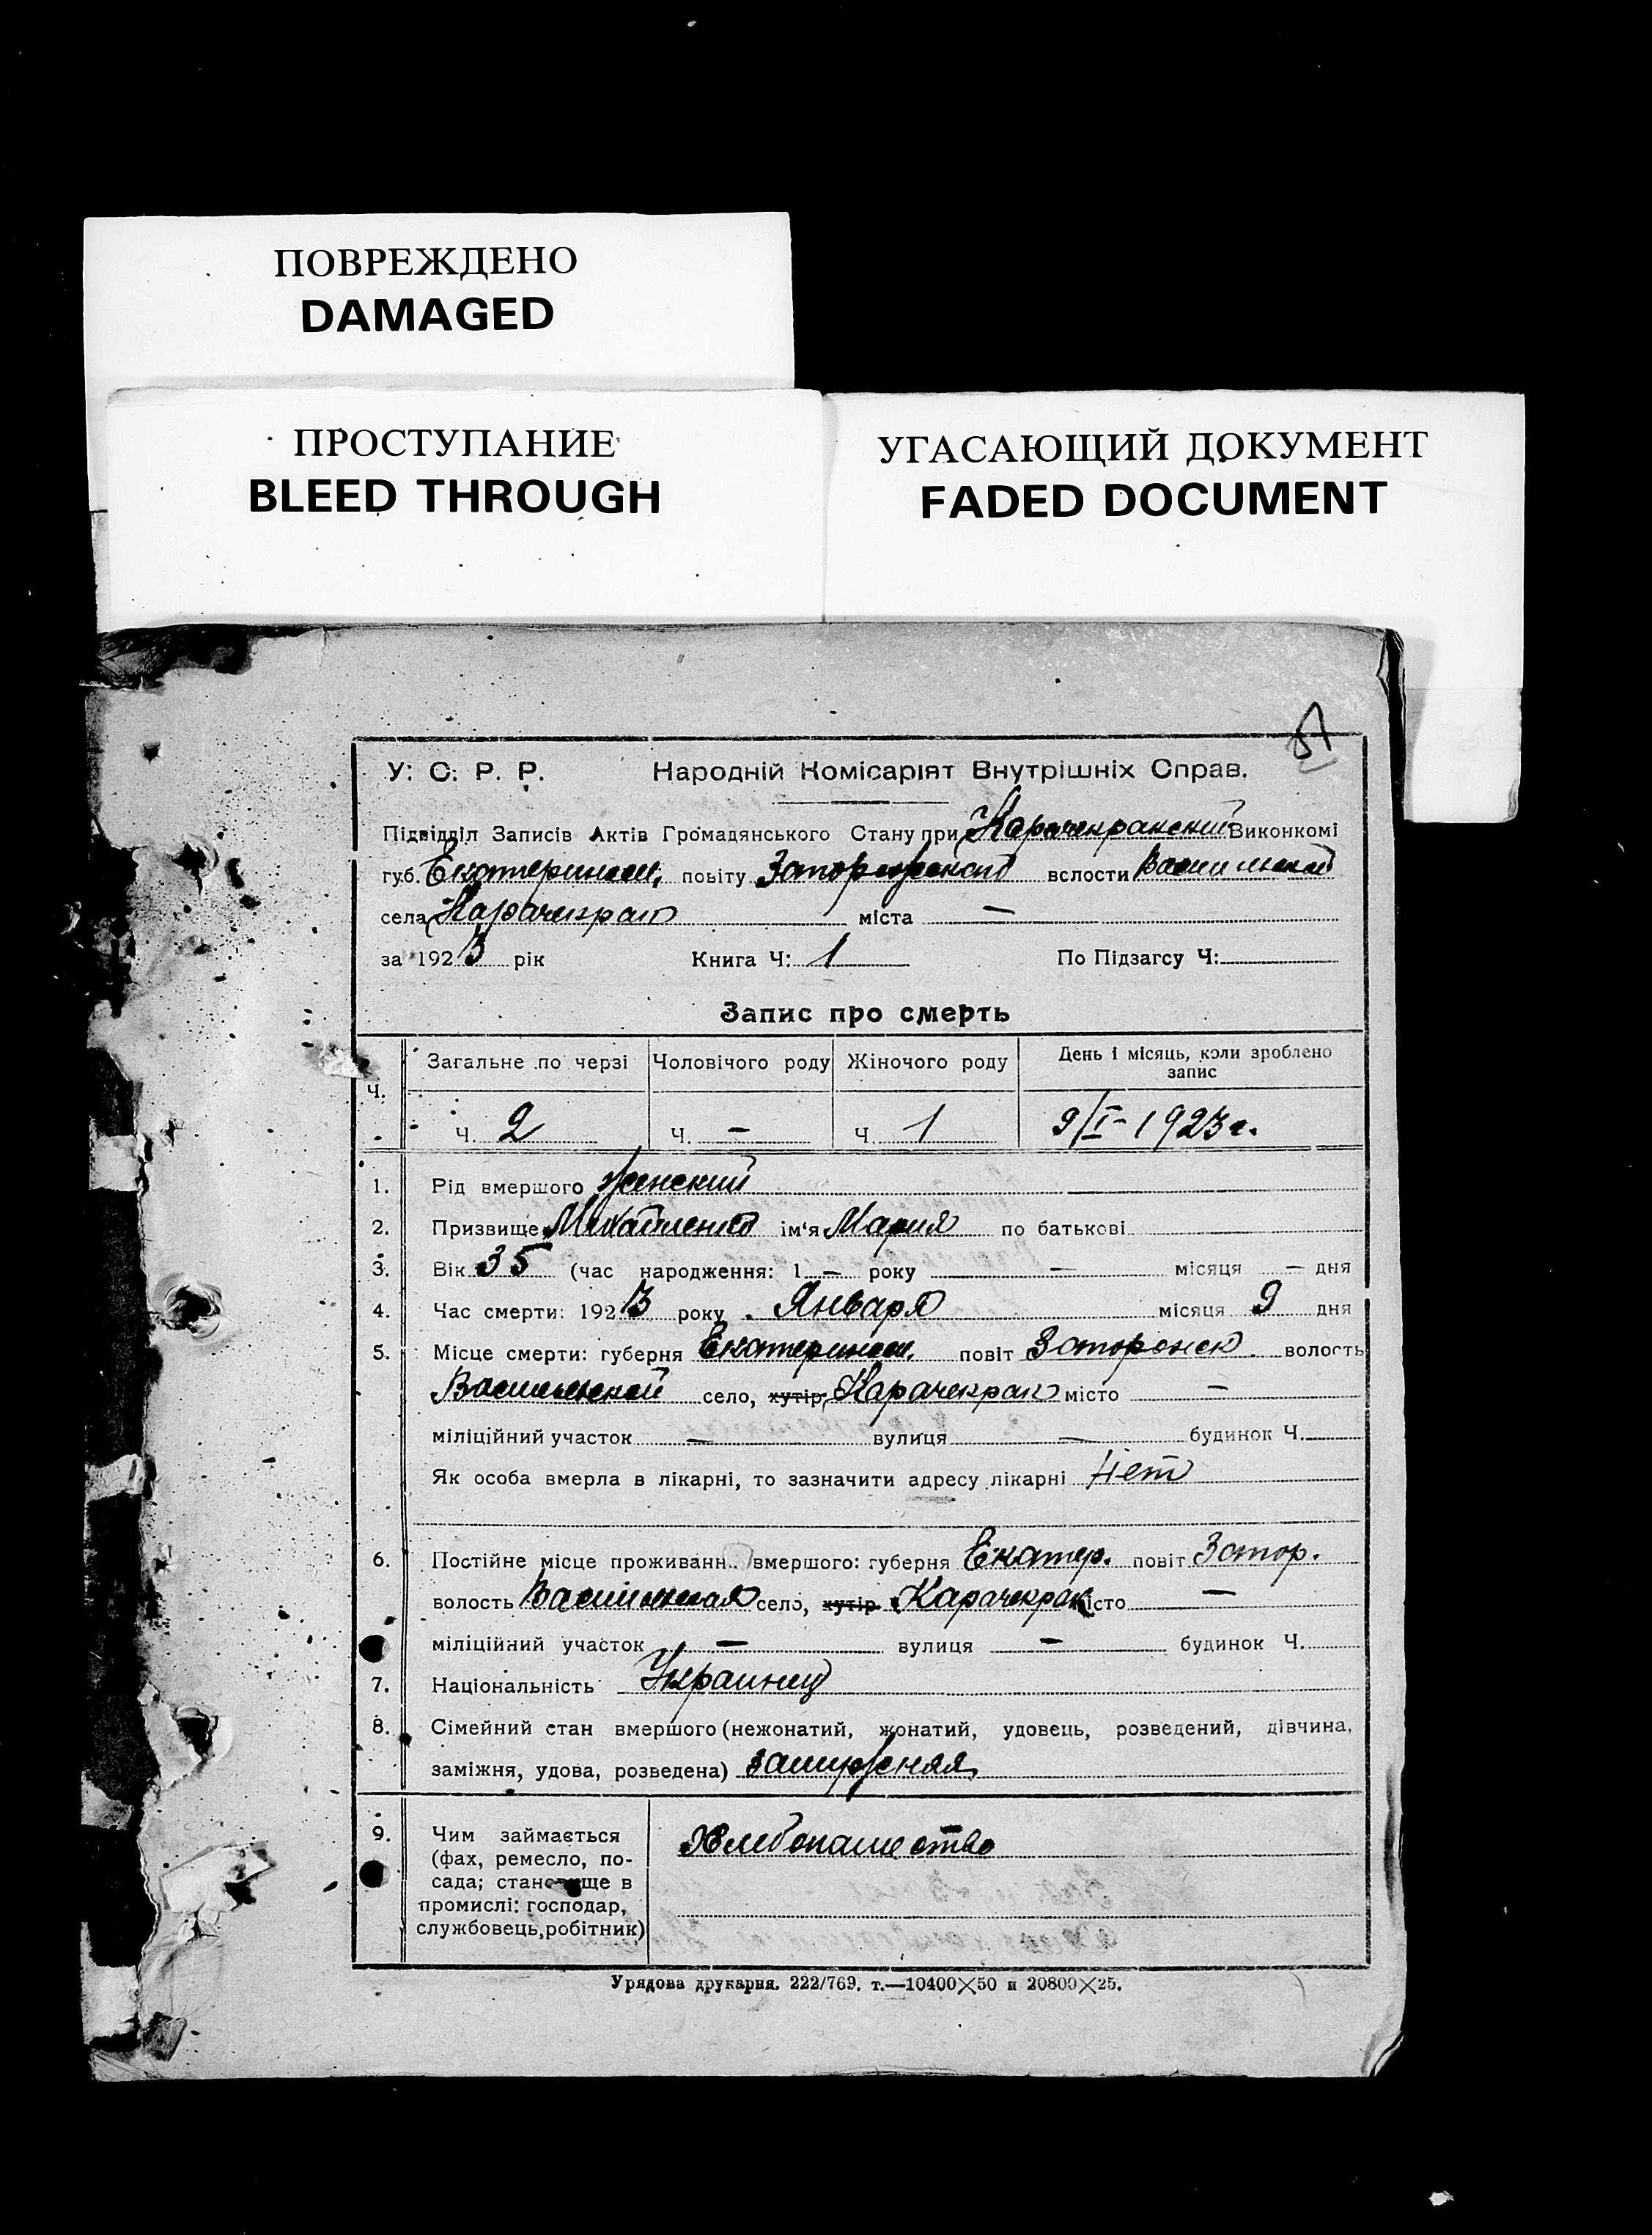 ПОВРЕЖДЕНО
DAMAGED
ПРОСТУПАНИЕ
BLEED THROUGH
УГАСАЮЩИЙ ДОКУМЕНТ
FADED DOCUMENT
У. С. Р. Р. Народній Комісаріят Внутрішніх Справ.
Підвідділ Записів Актів Громадянського Стану при Карачекракский Виконкомі
губ. Екатериносл. повіту Запорожской вслости Васильевской
села Карачекрак міста —
за 1923 рік Книга Ч: 1 По Підзагсу Ч:
Запис про смерть
Ч. Загальне по черзі Чоловічого роду Жіночого роду День і місяць, коли зроблено запис
Ч. 2 Ч. — Ч. 1 9/I-1923 г.
1. Рід вмершого женский
2. Призвище Михайленко ім'я Мария по батькові
3. Вік 35 (час народження: 1 — року — місяця — дня
4. Час смерти: 1923 року Января місяця 9 дня
5. Місце смерти: губерня Екатериносл. повіт Запорожск. волость
Васильевской село, хутір, Карачекрак місто —
міліційний участок — вулиця — будинок Ч.
Як особа вмерла в лікарні, то зазначити адресу лікарні Нет
6. Постійне місце проживанн вмершого: губерня Екатер. повіт Запор.
волость Васильевская село, хутір Карачекрак місто —
міліційний участок — вулиця — будинок Ч.
7. Національність Украинец
8. Сімейний стан вмершого (нежонатий, жонатий, удовець, розведений, дівчина,
заміжня, удова, розведена) замужняя
9. Чим займається Хлебопашество
(фах, ремесло, по-
сада; становище в
промислі: господар,
службовець, робітник)
Урядова друкарня. 222/769. т.—10400×50 и 20800×25.